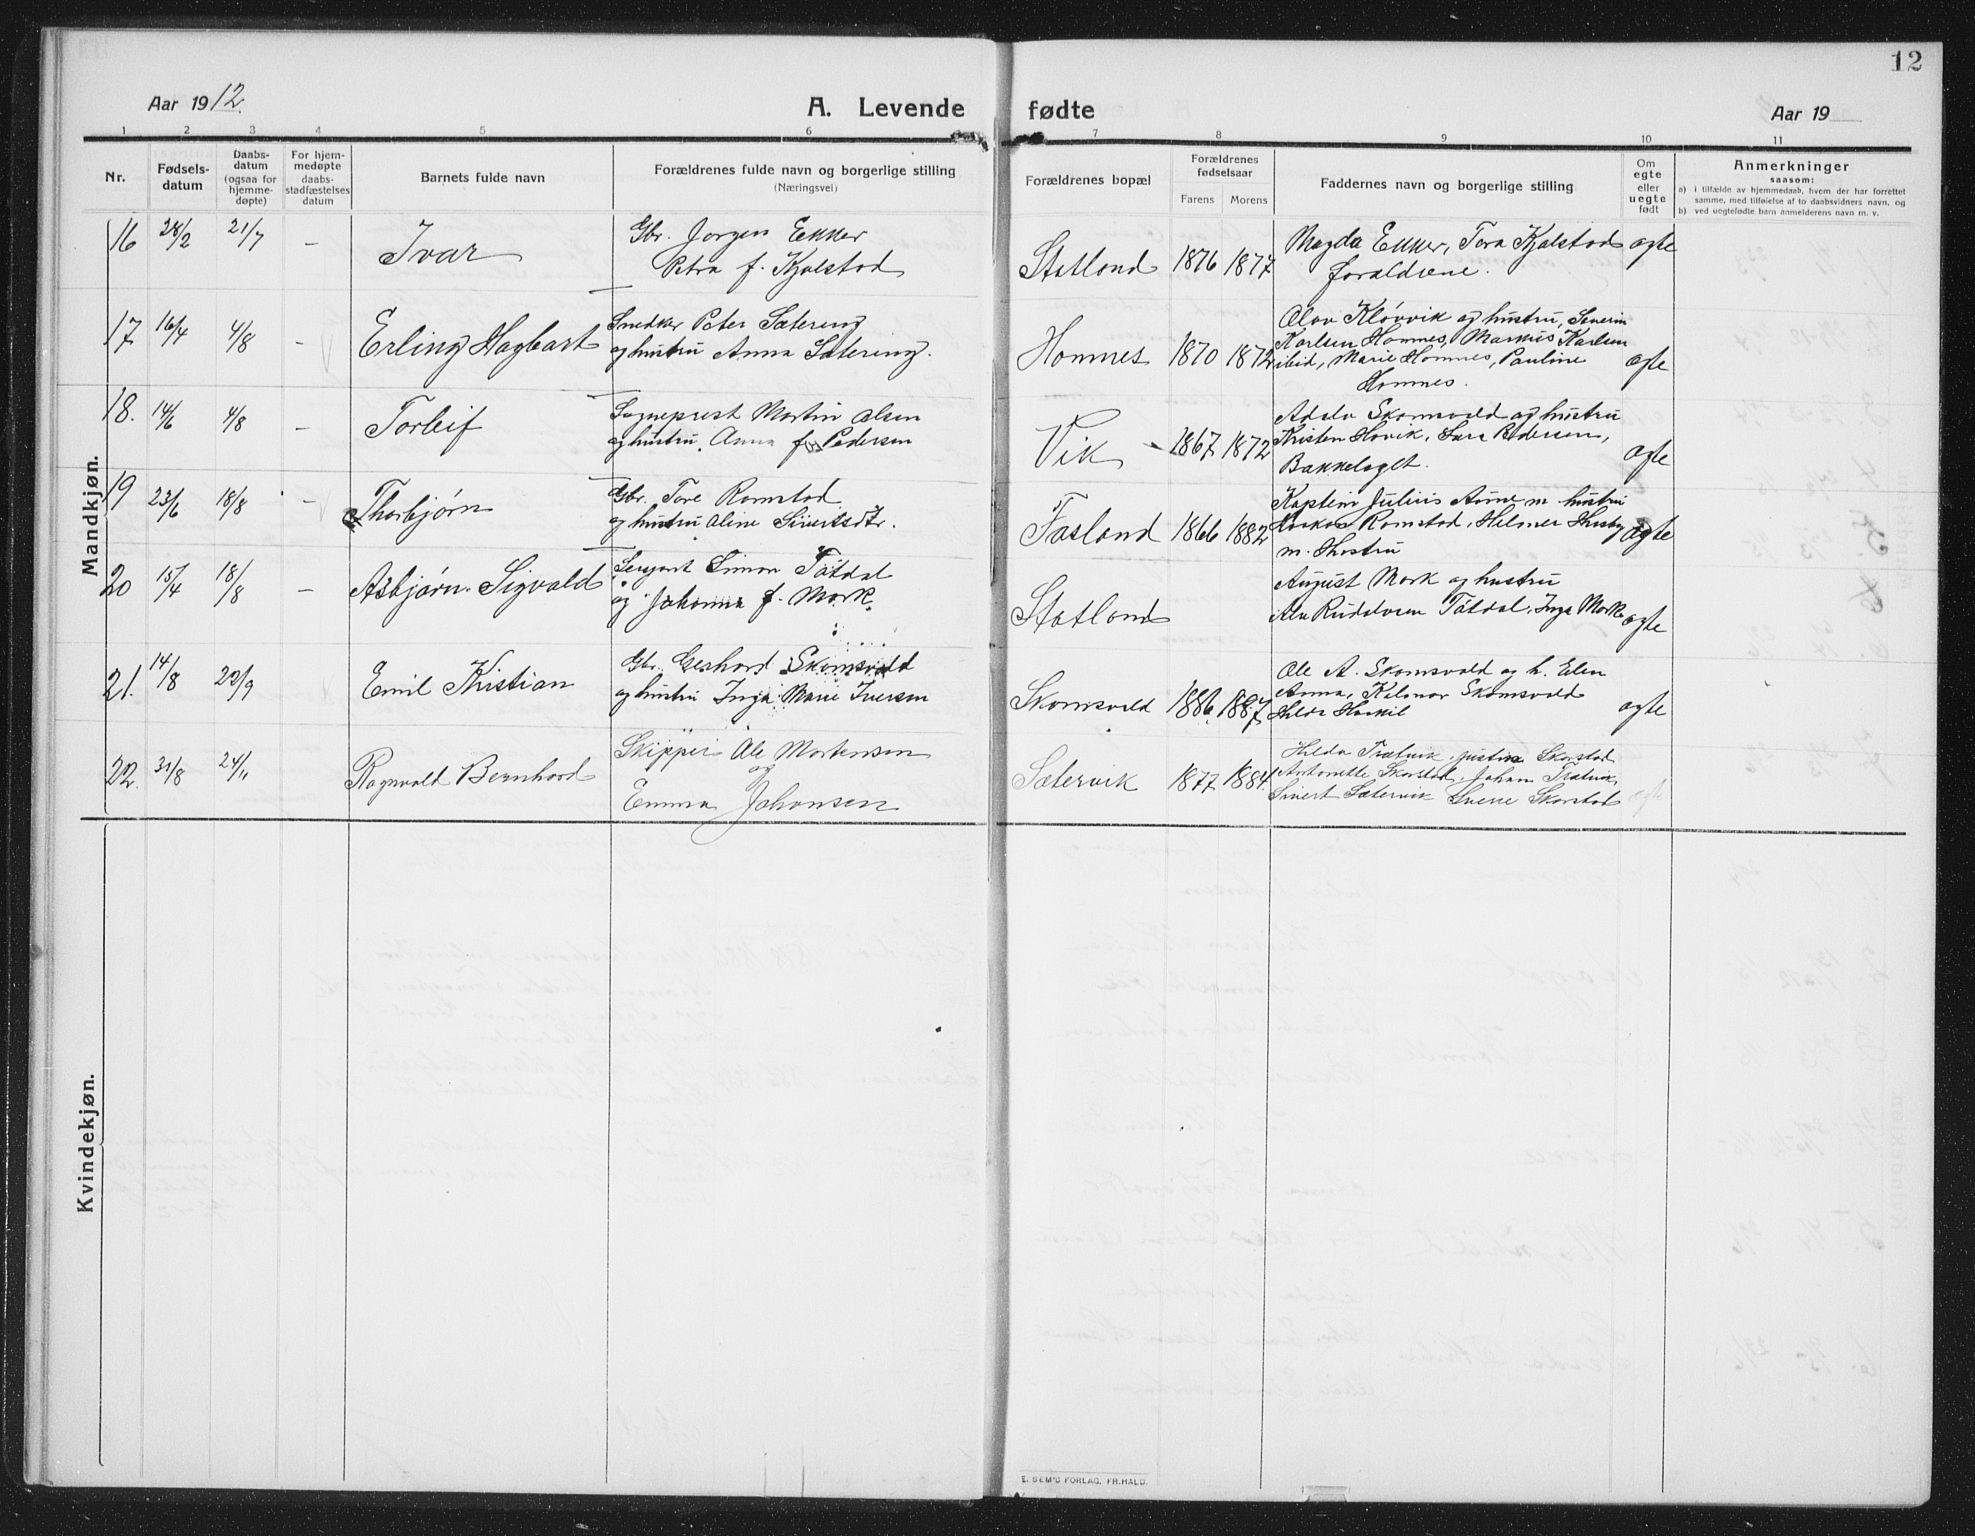 12
Aar 1912.
A. Levende fødte
Aar 19
1 2 3 4 5 6 7 8 9 10 11
Nr.
Fødsels-
datum
Daabs-
datum
(ogsaa for
hjemme-
døpte)
For hjem-
medøpte
daabs-
stadfæstelses
datum
Barnets fulde navn
Forældrenes fulde navn og borgerlige stilling
(Næringsvei)
Forældrenes bopæl
Forældrenes
fødselsaar
Farens Morens
Faddernes navn og borgerlige stilling
Om
egte
eller
uegte
født
Anmerkninger
saasom:
a) i tilfælde av hjemmedaab, hvem der har forrettet
samme, med tilføielse af to daabsvidners navn, og
b) ved uegtefødte barn anmelderens navn m. v.
Mandkjøn.
16 28/2 21/7 – Ivar
Gbr. Jorgen Ekker
Petra f. Kjølstad
Statland 1876 1877
Magda Ekker, Tora Kjølstad
forældrene.
ægte
17 16/4 4/8 – Erling Hagbart
Snedker Peter Sætereng
og hustru Anna Sætereng.
Homnes 1870 1872
Olav Kløvvik og hustru, Severin
Karlsen Homnes, Markus Karlsen
ibid, Marie Homnes, Pauline
Homnes.
ægte
18. 14/6 4/8 – Torleif
Sogneprest Martin Olsen
og hustru Anna f. Pedersen
Vik 1867 1872
Skomsvold og hustru
Kristen Hovik, Sara Pedersen,
Bakkelaget.
ægte
19 23/6 18/8 – Thorbjørn
Gbr. Tore Romstad
og hustru Aline Sivertsdtr.
Fosland 1866 1882
Kaptein Julius Aune m. hustru
Romstad, Helmer Husby
m. Hustru
ægte
20 15/4 18/8 – Asbjørn Sigvald
Sergent Simon Tøtdal
og Johanna f. Mork.
Statland
August Mork og hustru
Tøtdal, Inga Mork
ægte
21. 14/8 29/9 Emil Kristian
Gbr. Gerhard Skomsvold
og hustru Inga Marie Iversen
Skomsvold 1886 1887
Ole A. Skomsvold og h. Elen
Anna, Kalmar Skomsvold
Hilda
ægte
22. 31/8 24/11 Ragnvald Bernhard
Skipper Ole Mortensen
og
Emma Johansen
Sætervik 1877 1884
Hilda Trætvik, Justine Skorstad
Antonette Skorstad, Johan Trætvik,
Sivert Sætervik Sverre Skorstad
ægte
Kvindekjøn.
E. SEM'S FORLAG, FR.HALD.